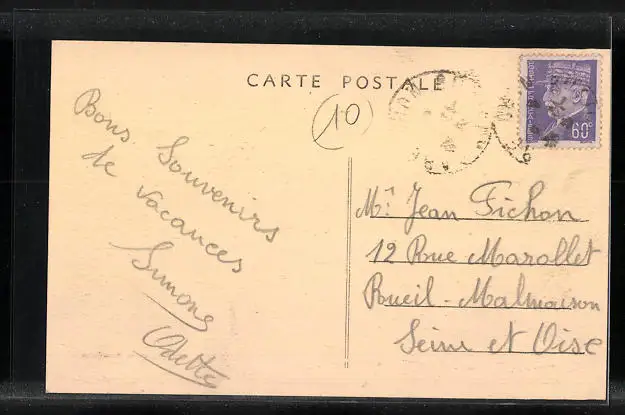 CARTE POSTALE
(10)
60c
Bons Souvenirs
de vacances
Simone
Odette
Mr Jean Fichon
12 Rue Marollet
Rueil-Malmaison
Seine et Oise